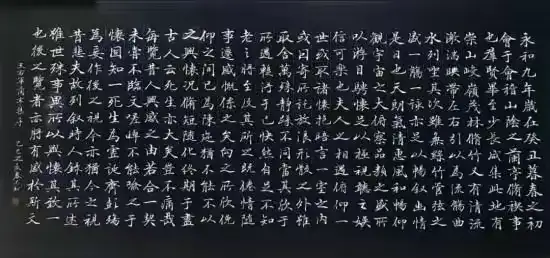 永和九年歲在癸丑暮春之初
會于會稽山陰之蘭亭脩稧事
也群賢畢至少長咸集此地有
崇山峻領茂林脩竹又有清流
激湍映帶左右引以為流觴曲
水列坐其次雖無絲竹管弦之
盛一觴一詠亦足以暢敘幽情
是日也天朗氣清惠風和暢仰
觀宇宙之大俯察品類之盛所
以遊目騁懷足以極視聽之娛
信可樂也夫人之相與俯仰一
世或取諸懷抱悟言一室之內
或因寄所託放浪形骸之外雖
趣舍萬殊靜躁不同當其欣于
所遇暫得于己快然自足不知
老之將至及其所之既倦情隨
事遷感慨係之矣向之所欣俛
仰之間已為陳迹猶不能不以
之興懷況脩短隨化終期于盡
古人云死生亦大矣豈不痛哉
每覽昔人興感之由若合一契
未嘗不臨文嗟悼不能喻之于
懷固知一死生為虛誕齊彭殤
為妄作後之視今亦猶今之視
昔悲夫故列敘時人錄其所述
雖世殊事異所以興懷其致一
也後之覽者亦將有感於斯文
王右軍蘭亭集序